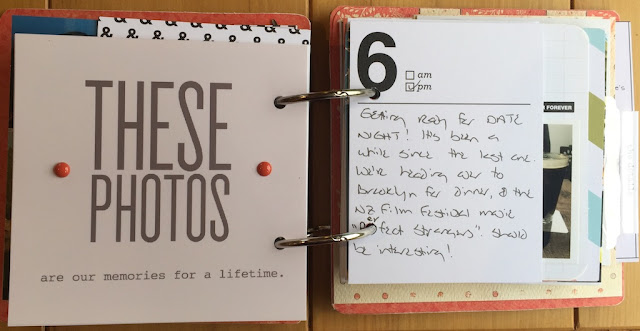 & & & & & & &
THESE
PHOTOS
are our memories for a lifetime.
6
am
pm
Getting ready for DATE
NIGHT! It's been a
while since the last one.
We're heading over to
Brooklyn for dinner, & the
NZ Film Festival movie
"Perfect Strangers". Should
be interesting!
FOREVER